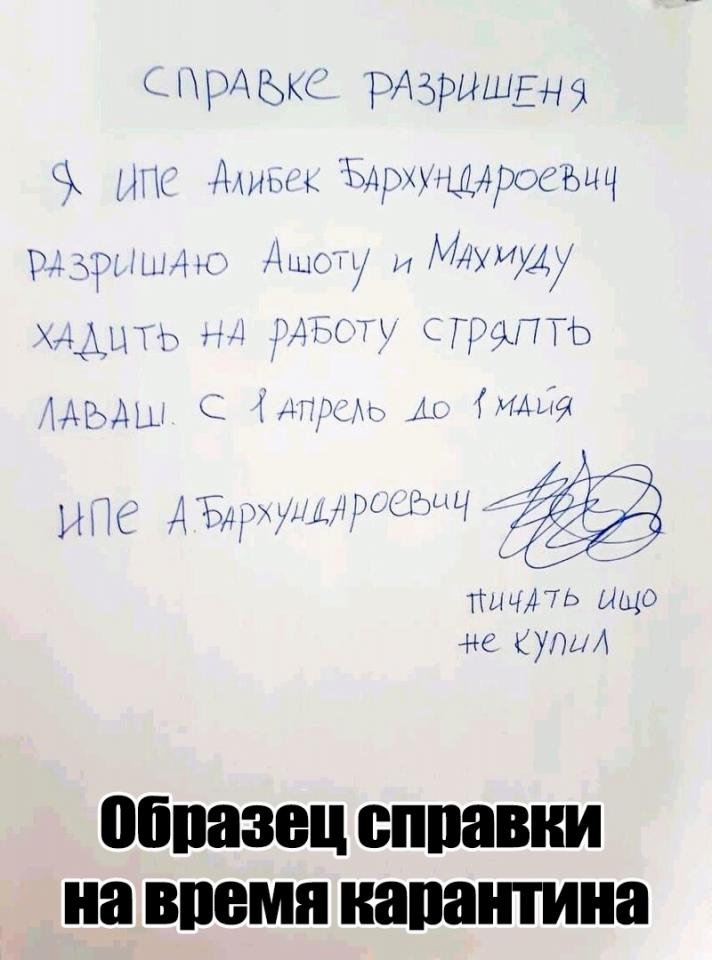 СПРАВКЕ РАЗРИШЕНЯ
Я ИПЕ Алибек БАРХУНДАРОЕВИЧ
РАЗРИШАЮ Ашоту и Махмуду
ХАДИТЬ НА РАБОТУ СТРЯПТЬ
ЛАВАШ. С 1 АПРЕЛЬ ДО 1 МАЙЯ
ИПЕ А.БАРХУНДАРОЕВИЧ
ПИЧАТЬ ИЩО
НЕ КУПИЛ
Образец справки
на время карантина